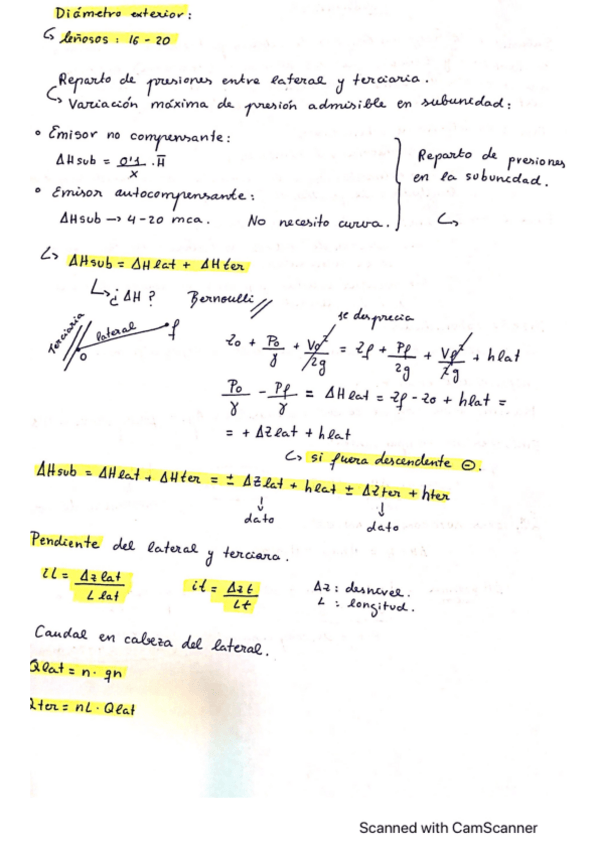 Diámetro exterior:
↳ leñosos: 16 - 20
Reparto de presiones entre lateral y terciaria.
↳ Variación máxima de presión admisible en subunidad:
• Emisor no compensante:
ΔHsub = 0'1/x · H̅
• Emisor autocompensante:
ΔHsub → 4-20 mca. No necesito curva.
Reparto de presiones
en la subunidad.
↳
↳ ΔHsub = ΔHlat + ΔHter
↳ ¿ΔH? Bernoulli //
Terciaria
lateral
f
o
se desprecia
zo + Po/γ + Vo²/2g = zf + Pf/2g + Vf²/2g + hlat
Po/γ - Pf/γ = ΔHlat = zf - zo + hlat =
= + ΔZlat + hlat
↳ si fuera descendente ⊖.
ΔHsub = ΔHlat + ΔHter = ± ΔZlat + hlat ± ΔZter + hter
↓ ↓
dato dato
Pendiente del lateral y terciara.
iL = Δz lat/L lat it = Δz t/Lt Δz: desnivel.
L: longitud.
Caudal en cabeza del lateral.
Qlat = n · qn
Qter = nL · Qlat
Scanned with CamScanner